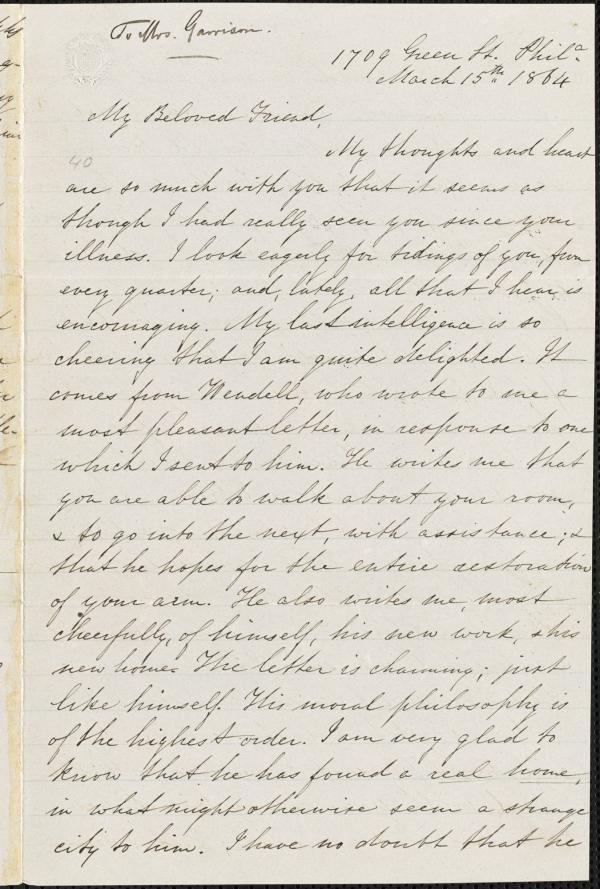 To Mrs. Garrison.
1709 Green St. Phil.a
March 15th 1864
My Beloved Friend,
40
My thoughts and heart
are so much with you that it seems as
though I had really seen you since your
illness. I look eagerly for tidings of you, from
every quarter; and, lately, all that I hear is
encouraging. My last intelligence is so
cheering that I am quite delighted. It
comes from Wendell, who wrote to me a
most pleasant letter, in response to one
which I sent to him. He writes me that
you are able to walk about your room,
& to go into the next, with assistance; &
that he hopes for the entire restoration
of your arm. He also writes me, most
cheerfully, of himself, his new work, & his
new home. The letter is charming; just
like himself. His moral philosophy is
of the highest order. I am very glad to
know that he has found a real home,
in what might otherwise seem a strange
city to him. I have no doubt that he